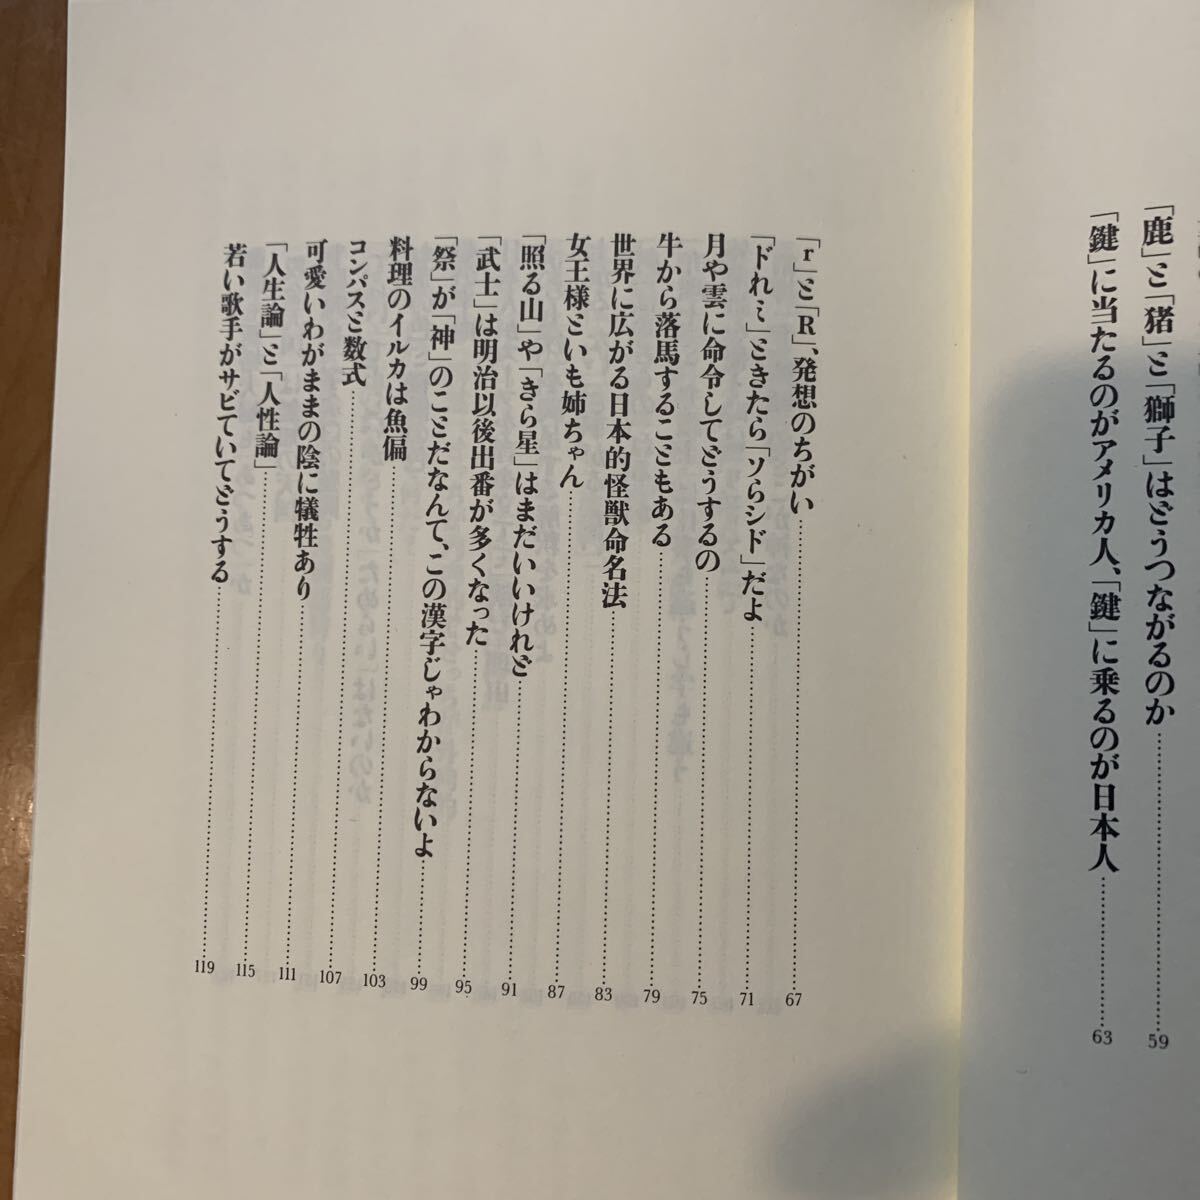 「鹿」と「猪」と「獅子」はどうつながるのか……59
「鍵」に当たるのがアメリカ人、「鍵」に乗るのが日本人……63
「r」と「R」、発想のちがい……67
「ドれミ」ときたら「ソらシド」だよ……71
月や雲に命令してどうするの……75
牛から落馬することもある……79
世界に広がる日本的怪獣命名法……83
女王様といも姉ちゃん……87
「照る山」や「きら星」はまだいいけれど……91
「武士」は明治以後出番が多くなった……95
「祭」が「神」のことだなんて、この漢字じゃわからないよ……99
料理のイルカは魚偏……103
コンパスと数式……107
可愛いわがままの陰に犠牲あり……111
「人生論」と「人性論」……115
若い歌手がサビていてどうする……119